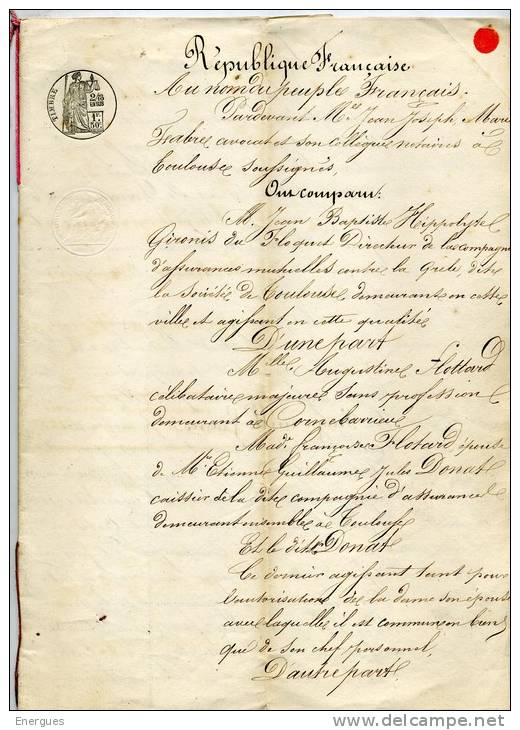 République Française
Au nom du peuple Français.
Pardevant Mes Jean Joseph Marie
Fabre avocat et son collègue notaires à
Toulouse soussignés,
Ont comparu:
M. Jean Baptiste Hippolyte
Gironis du Floquet Directeur de la compagnie
d'assurances mutuelles contre la Grêle dite
la Société de Toulouse, demeurant en cette
ville et agissant en cette qualité
D'une part
Mlle Augustine Flottard
célibataire majeure sans profession
demeurant à Cornebarrieu
Made françoise Flotard épouse
de Mr Etienne Guillaume Jules Donat
caissier de la dite compagnie d'assurance
demeurant ensemble à Toulouse
Et le dit Mr Donat
Ce dernier agissant tant pour
l'autorisation de la dame son épouse
avec laquelle il est commun en biens
que de son chef personnel,
D'autre part
TIMBRE
1F
50c
Energues
www.delcampe.net